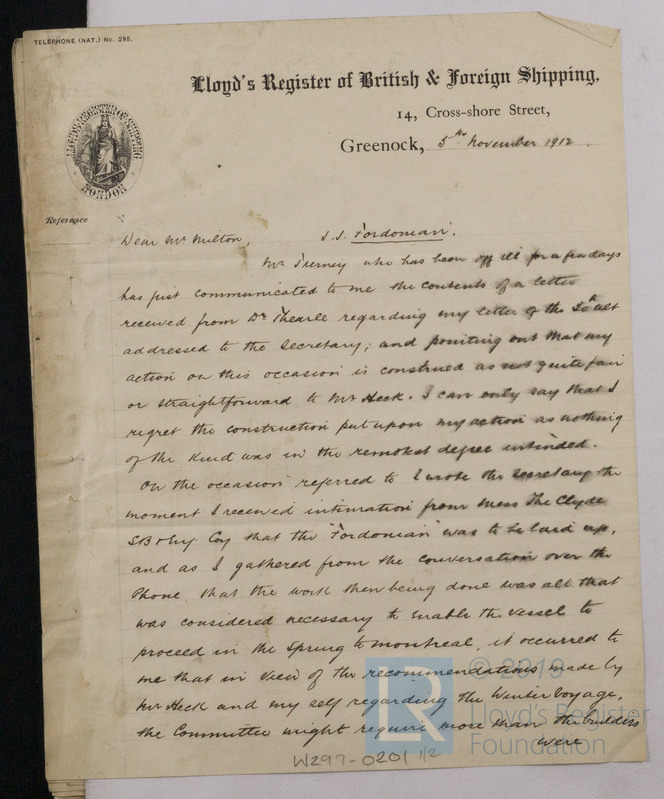 TELEPHONE (NAT.) No. 295.
Lloyd's Register of British & Foreign Shipping,
14, Cross-shore Street,
Greenock, 5th November 1912.
LLOYD'S REGISTER OF SHIPPING
LONDON
Reference
Dear Mr Milton, S.S. "Fordonian".
Mr Tierney who has been off ill for a few days
has just communicated to me the contents of a letter
received from Dr Thearle regarding my letter of the 30th ult
addressed to the Secretary; and pointing out that my
action on this occasion is construed as not quite fair
or straightforward to Mr Heck. I can only say that I
regret the construction put upon my action as nothing
of the kind was in the remotest degree intended.
On the occasion referred to I wrote the Secretary the
moment I received intimation from Mess The Clyde
SB & Eng. Coy that the "Fordonian" was to be laid up,
and as I gathered from the conversation over the
Phone that the work then being done was all that
was considered necessary to enable the vessel to
proceed in the Spring to Montreal, it occurred to
me that in view of the recommendations made by
Mr Heck and my self regarding the Winter Voyage,
the Committee might require more than the builders
were
© 2019
LR
Lloyd's Register
Foundation
W297-0201 1/2